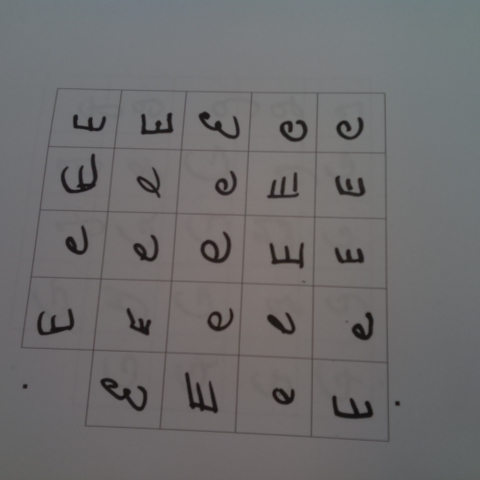 E E E e e
E e e E E
e e e E E
E E e e e
E E e E